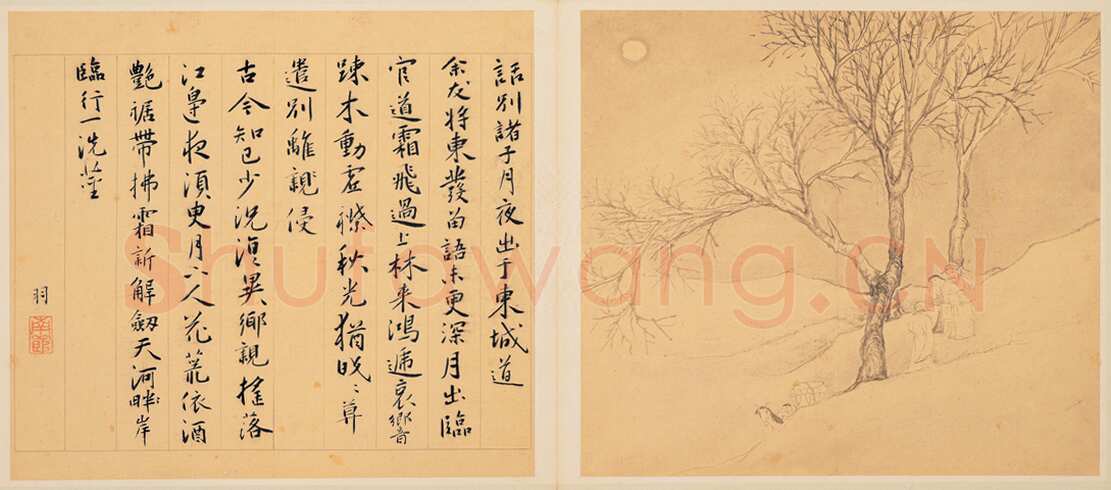 話別諸子月夜出于東城道
余友将東發留語未更深月出臨
官道霜飛過上林来鴻遞哀響
踈木動虛襟秋光猶
遣別離侵
古今知己少況復異鄉親搖落
江皐夜湏臾月人花依酒
艷裾帶拂霜新解劔天河畔岸
臨行一洗
羽
Shufawang.CN